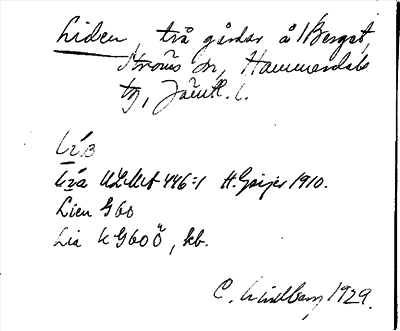 Liden två gårdar å 1 Bergst,
Ströms sn, Hammerdals
tg, Jämtl. l.
Lí.з
lı̃a ULMA 446:1 H. Geijer 1910.
Lien G60
Lia K G60 Ö, kb.
C. Lindberg 1929.